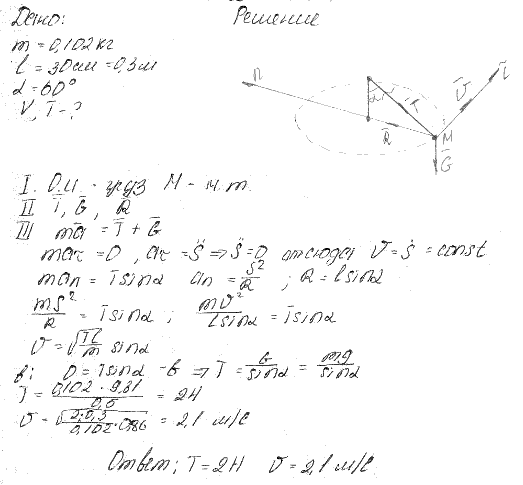 Дано: Решение
m = 0,102 кг
l = 30 см = 0,3 м
α = 60°
V, T - ?
n
α
T
R
M
G
v
τ
I. О.И. - груз M - м.т.
II T̄, Ḡ, R
III mā = T̄ + Ḡ
maτ = 0, aτ = S̈ ⇒ S̈ = 0 отсюда V = Ṡ = const
man = T sinα an = Ṡ²/R ; R = l sinα
mṠ²/R = T sinα ; mv²/l sinα = T sinα
v = √(Tl/m) sinα
в: 0 = T sinα - G ⇒ T = G/sinα = mg/sinα
T = 0,102 · 9,81/0,5 = 2Н
v = √(2·0,3/0,102·0,86) = 2,1 м/с
Ответ; T = 2Н v = 2,1 м/с